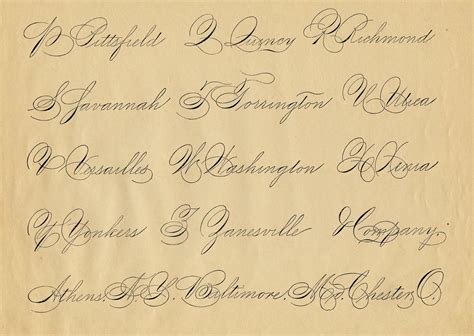 P Pittsfield Q Quzney R Richmond
S Savannah T Torrington U Utica
V Versailles W Washington X Xinia
Y Yonkers Z Zanesville & Company.
Athens. Baltimore. Md. Chester, O.